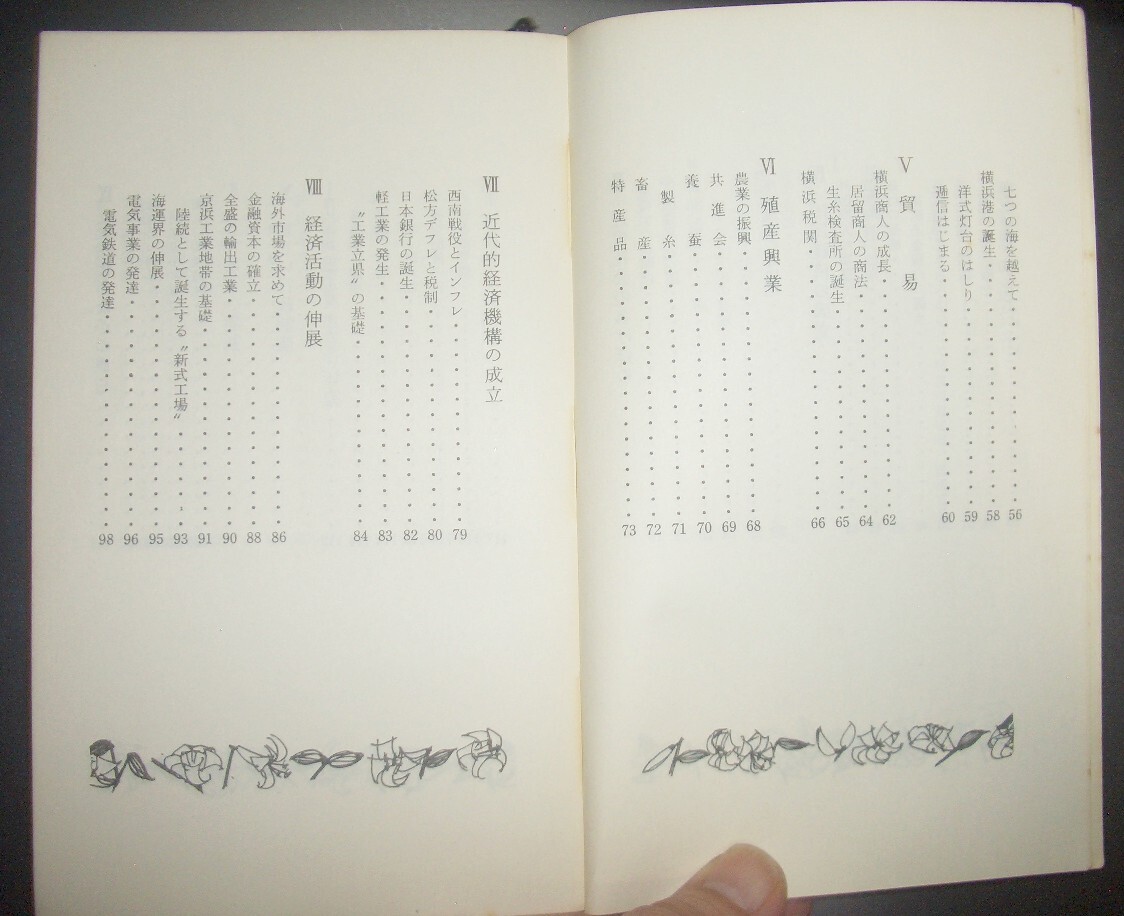 七つの海を越えて・・・・・・・・・・・・・・56
横浜港の誕生・・・・・・・・・・・・・・・・58
洋式灯台のはしり・・・・・・・・・・・・・・59
逓信はじまる・・・・・・・・・・・・・・・・60
Ⅴ 貿易
横浜商人の成長・・・・・・・・・・・・・・・62
居留商人の商法・・・・・・・・・・・・・・・64
生糸検査所の誕生・・・・・・・・・・・・・・65
横浜税関・・・・・・・・・・・・・・・・・・66
Ⅵ 殖産興業
農業の振興・・・・・・・・・・・・・・・・・68
共進会・・・・・・・・・・・・・・・・・・・69
養蚕・・・・・・・・・・・・・・・・・・・・70
製糸・・・・・・・・・・・・・・・・・・・・71
畜産・・・・・・・・・・・・・・・・・・・・72
特産品・・・・・・・・・・・・・・・・・・・73
Ⅶ 近代的経済機構の成立
西南戦役とインフレ・・・・・・・・・・・・・79
松方デフレと税制・・・・・・・・・・・・・・80
日本銀行の誕生・・・・・・・・・・・・・・・82
軽工業の発生・・・・・・・・・・・・・・・・83
〝工業立県〟の基礎・・・・・・・・・・・・・84
Ⅷ 経済活動の伸展
海外市場を求めて・・・・・・・・・・・・・・86
金融資本の確立・・・・・・・・・・・・・・・88
全盛の輸出工業・・・・・・・・・・・・・・・90
京浜工業地帯の基礎・・・・・・・・・・・・・91
陸続として誕生する〝新式工場〟・・・・・・・93
海運界の伸展・・・・・・・・・・・・・・・・95
電気事業の発達・・・・・・・・・・・・・・・96
電気鉄道の発達・・・・・・・・・・・・・・・98